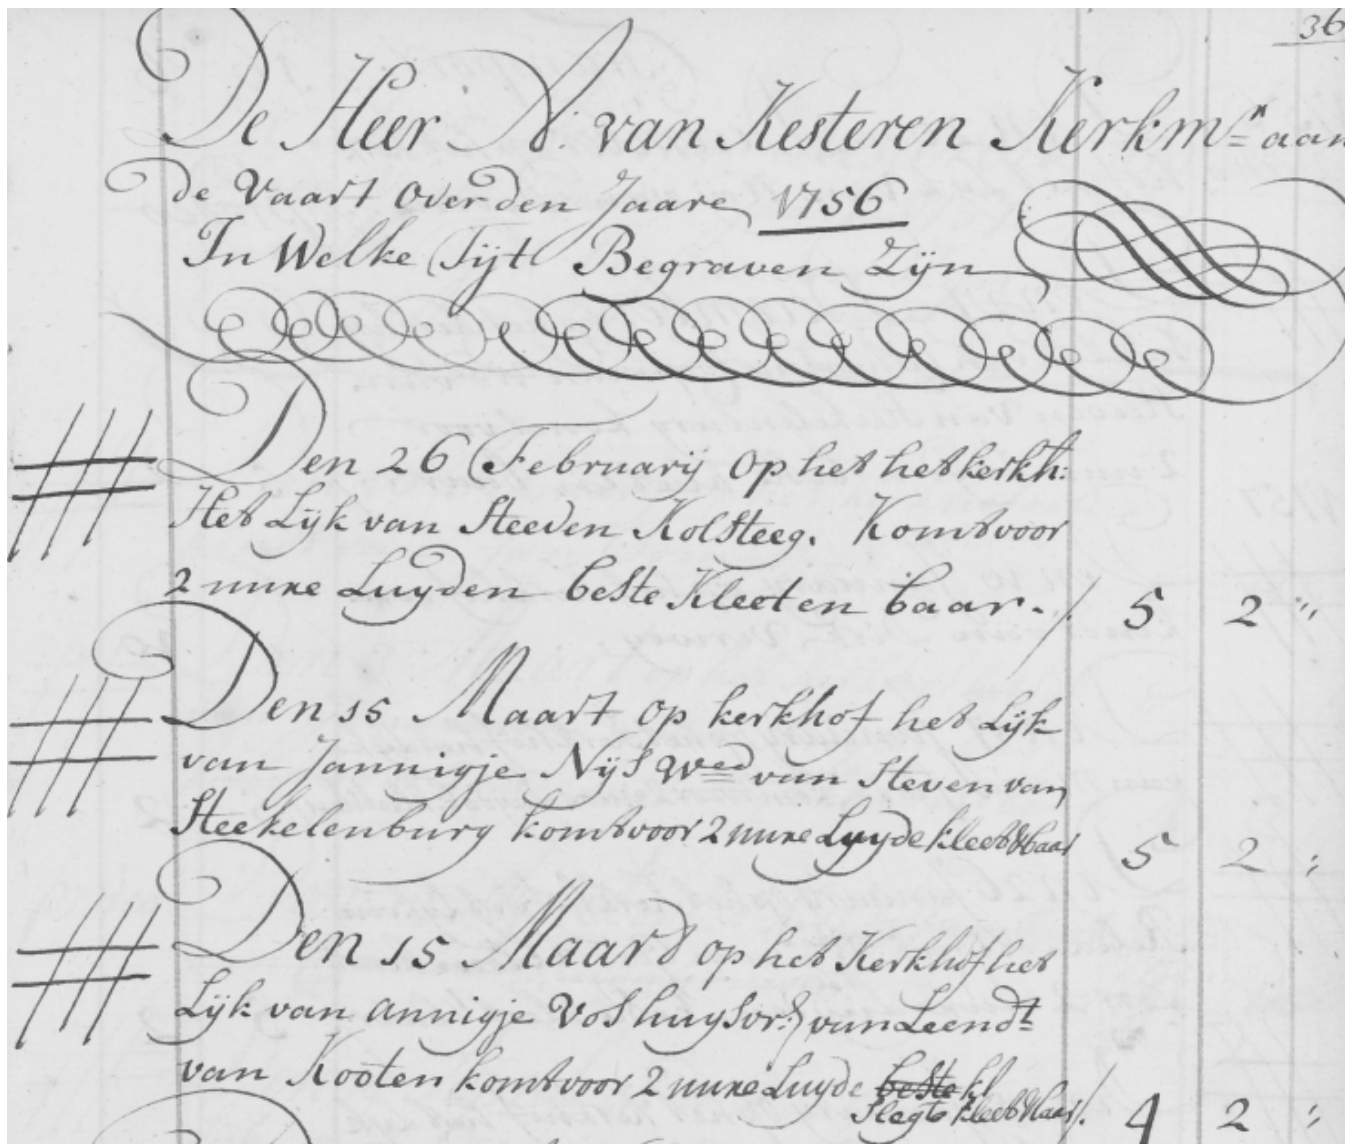 36
De Heer N: van Kesteren Kerkm=r aan
de Vaart over den Jaare 1756
In Welke Tijt Begraven Zijn
Den 26 February op het het kerkh:
Het Lijk van Steeven Kolsteeg. Komt voor
2 uure Luyden beste Kleet en baar. /. 5 2 "
Den 15 Maart op kerkhof het Lijk
van Jannigje Nijs Wed van Steven van
Steekelenburg komt voor 2 uure Luyde kleet & baar 5 2 "
Den 15 Maard op het Kerkhof het
Lijk van annigje Vos huysvr: van Leendt
van Kooten komt voor 2 uure Luyde beste kl
Slegte kleet & baar /. 4 2 "